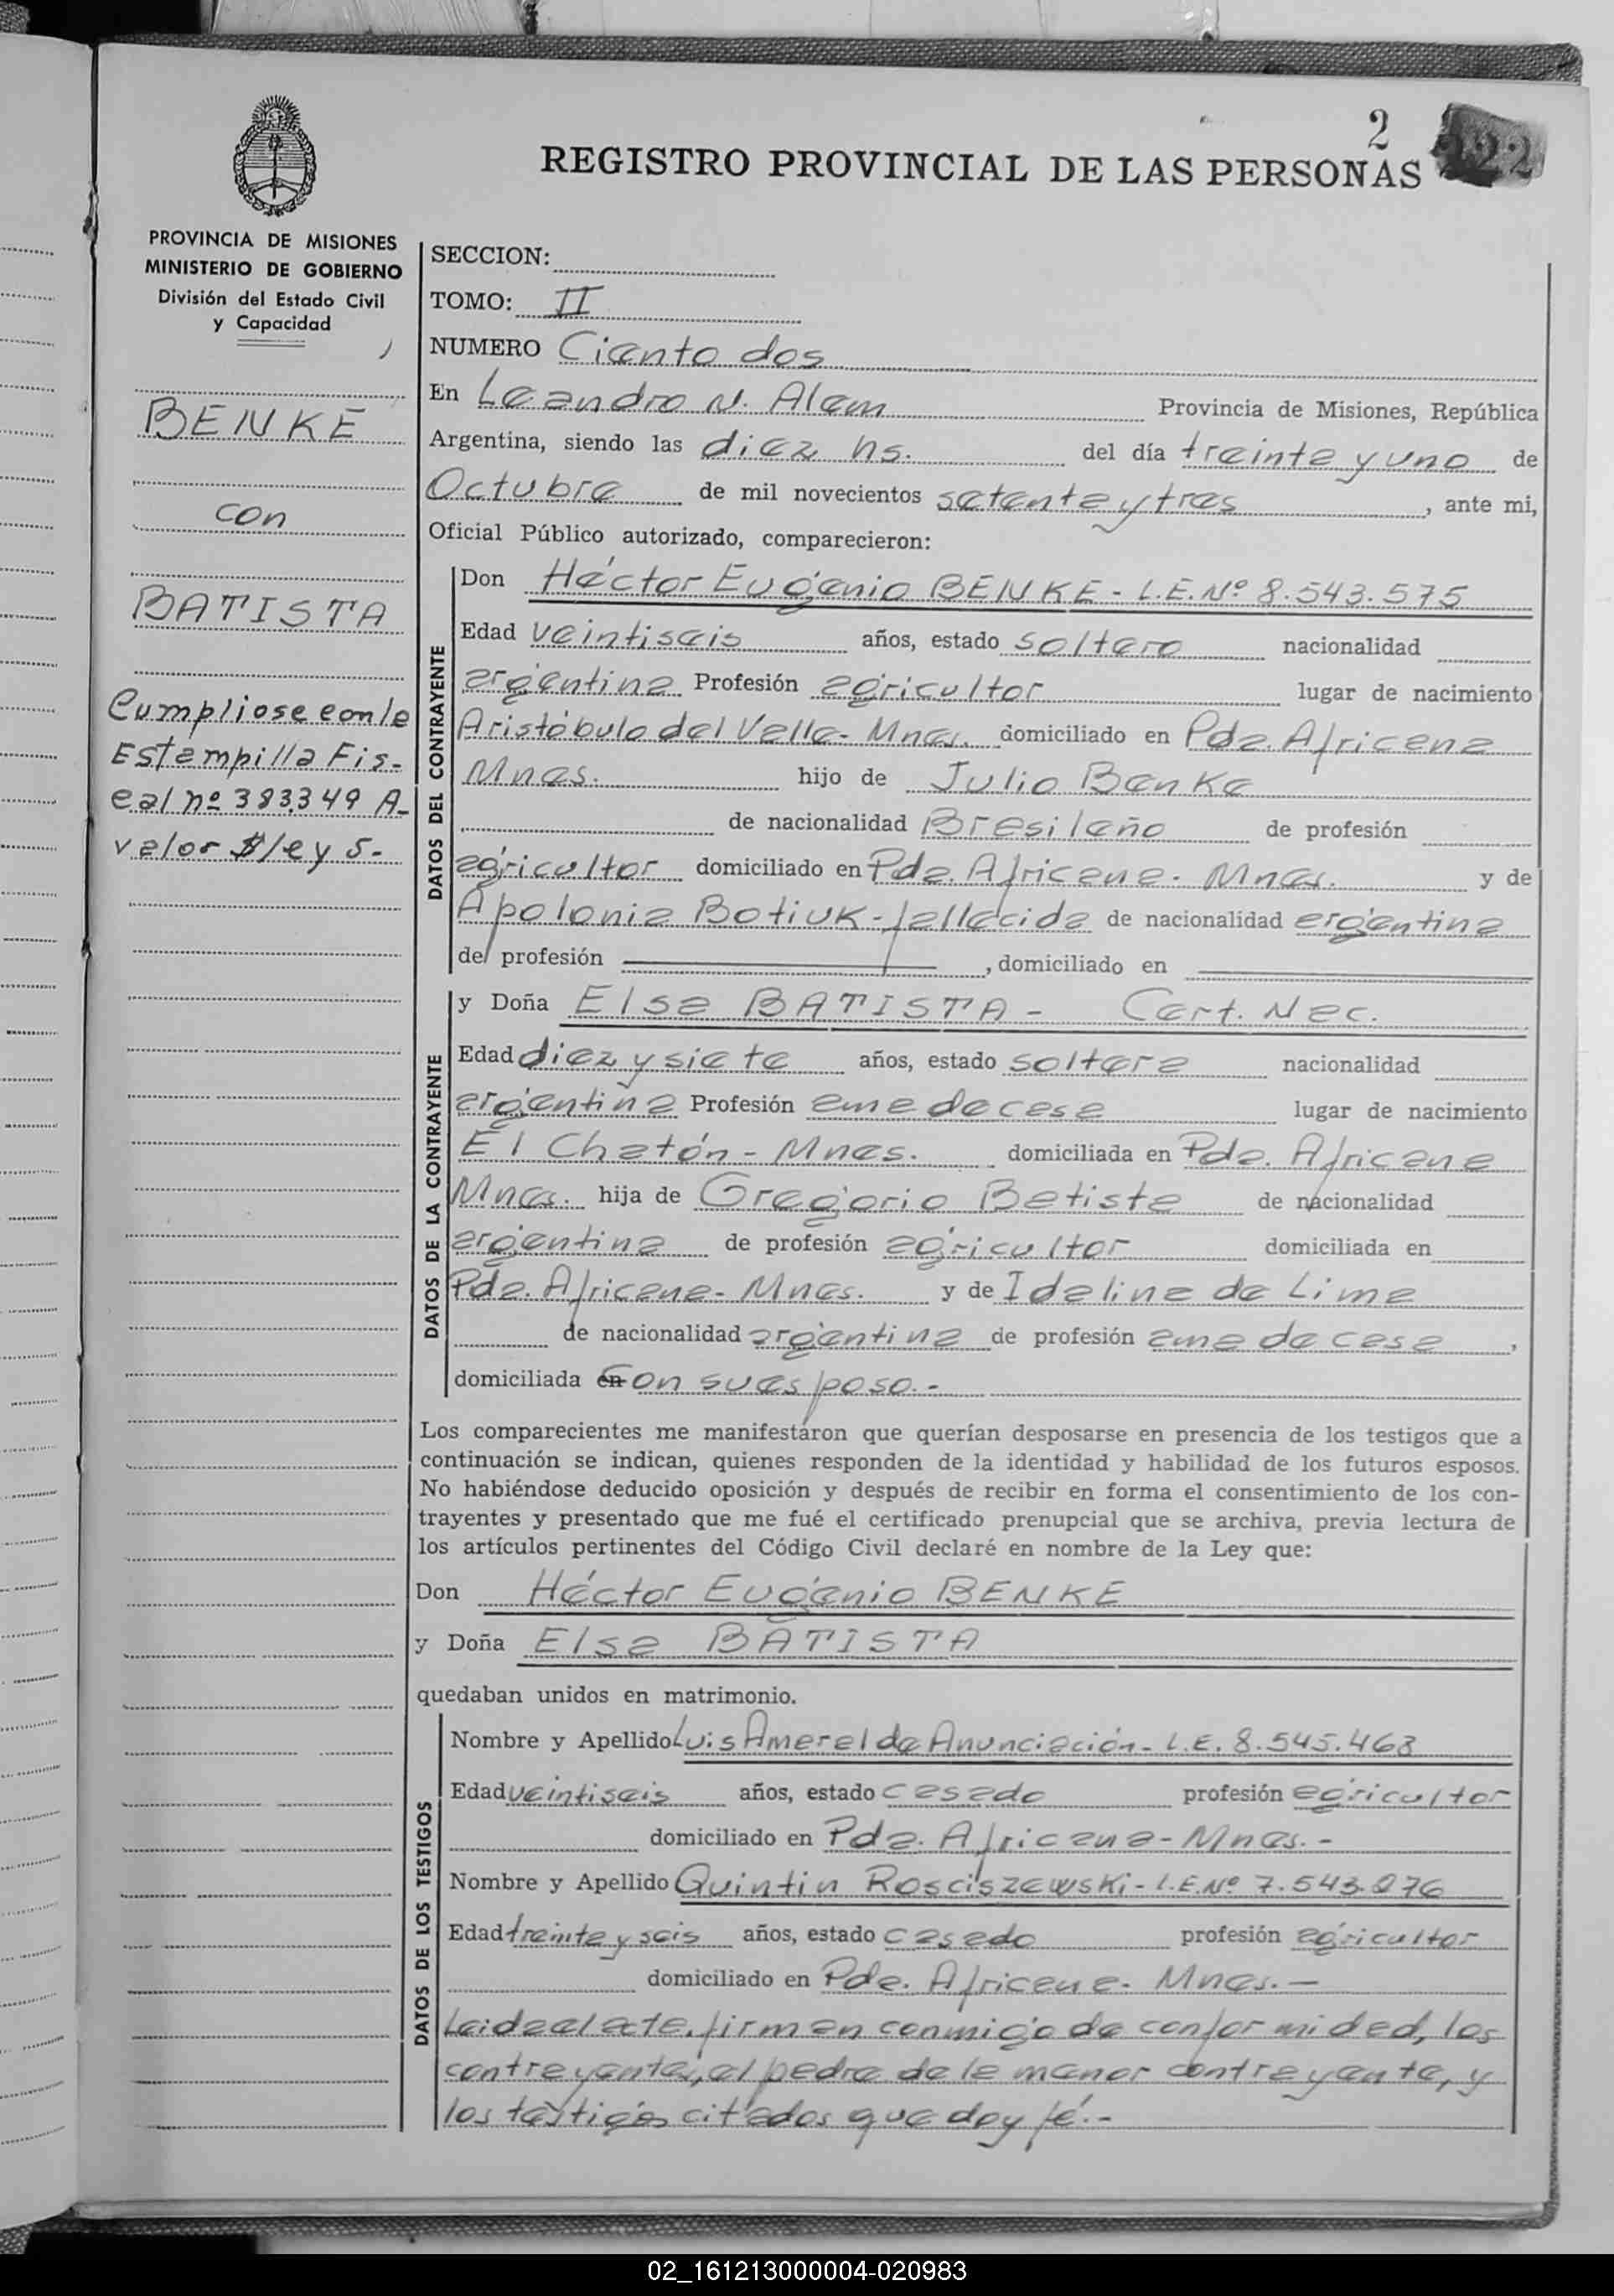 2
22
REGISTRO PROVINCIAL DE LAS PERSONAS
PROVINCIA DE MISIONES
MINISTERIO DE GOBIERNO
División del Estado Civil
y Capacidad
BENKE
con
BATISTA
Cumpliose con la
Estampilla Fis-
cal nº 383349 A-
valor $/ey 5-
SECCION:
TOMO: II
NUMERO Ciento dos
En Leandro N. Alem Provincia de Misiones, República
Argentina, siendo las diez hs. del día treinta y uno de
Octubre de mil novecientos setenta y tres, ante mi,
Oficial Público autorizado, comparecieron:
DATOS DEL CONTRAYENTE
Don Héctor Eugenio BENKE - L.E.Nº 8.543.575
Edad veintiseis años, estado soltero nacionalidad
argentina Profesión agricultor lugar de nacimiento
Aristóbulo del Valle- Mnes. domiciliado en Pda. Africana
Mnes. hijo de Julio Benke
de nacionalidad Brasileño de profesión
agricultor domiciliado en Pda. Africana- Mnes. y de
Apolonia Botiuk-fallecida de nacionalidad argentina
de profesión , domiciliado en
DATOS DE LA CONTRAYENTE
y Doña Elsa BATISTA - Cert. Nac.
Edad diez y siete años, estado soltera nacionalidad
argentina Profesión ama de casa lugar de nacimiento
El Chatón - Mnes. domiciliada en Pda. Africana
Mnes. hija de Gregorio Batista de nacionalidad
argentina de profesión agricultor domiciliada en
Pda. Africana- Mnes. y de Idalina de Lima
de nacionalidad argentina de profesión ama de casa,
domiciliada con su esposo.-
Los comparecientes me manifestaron que querían desposarse en presencia de los testigos que a
continuación se indican, quienes responden de la identidad y habilidad de los futuros esposos.
No habiéndose deducido oposición y después de recibir en forma el consentimiento de los con-
trayentes y presentado que me fué el certificado prenupcial que se archiva, previa lectura de
los artículos pertinentes del Código Civil declaré en nombre de la Ley que:
Don Héctor Eugenio BENKE
y Doña Elsa BATISTA
quedaban unidos en matrimonio.
DATOS DE LOS TESTIGOS
Nombre y Apellido Luis Amaral da Anunciación- L.E. 8.545.468
Edad veintiseis años, estado casado profesión agricultor
domiciliado en Pda. Africana- Mnes.-
Nombre y Apellido Quintin Rosciszewski- L.E.Nº 7.543.876
Edad treinta y seis años, estado casado profesión agricultor
domiciliado en Pda. Africana- Mnes.-
Leida el acta, firman conmigo de conformidad, los
contrayentes, el padre de la menor contrayente, y
los testigos citados que doy fé.-
02_161213000004-020983